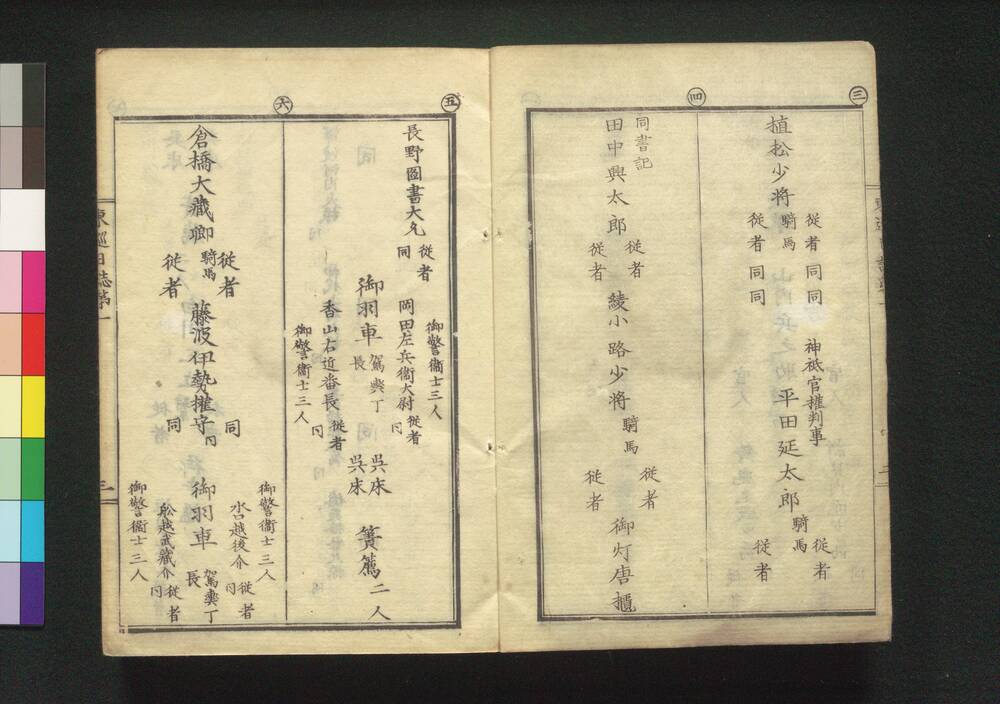 三
植松少将
騎馬
従者 同 同
従者 同 同
神祇官権判事
平田延太郎
騎馬
従者
従者
四
同書記
田中興太郎
従者
従者
綾小路少将
騎馬
従者
従者
御灯唐櫃
五
長野図書大允
従者
同
御警衞士三人
岡田左兵衞大尉
従者
同
御羽車
駕輿丁
長
香山右近番長
従者
同
御警衞士三人
呉床
呉床
簀薦二人
六
倉橋大蔵卿
騎馬
従者
従者
藤波伊勢権守
同
同
同
御警衞士三人
水口越後介
従者
同
御羽車
駕輿丁
長
舩越武蔵介
従者
同
御警衞士三人
東巡日誌第一
三